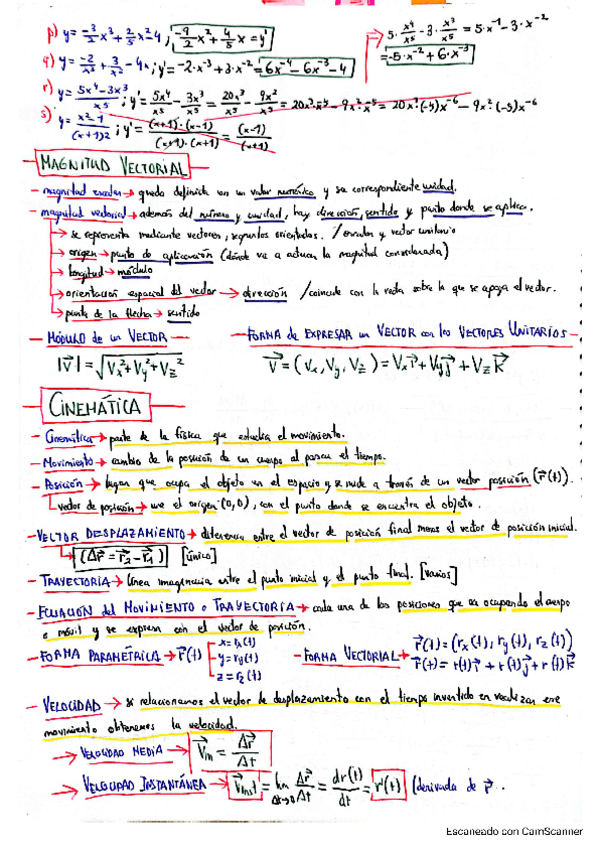 p) y = -3/2 x³ + 2/5 x² 4 ; -9/2 x² + 4/5 x = y'
5 · x⁴/x⁵ - 3 · x³/x⁵ = 5 · x⁻¹ - 3 · x⁻²
= -5 · x⁻² + 6 · x⁻³
q) y = -2/x³ + 3/x² - 4x ; y' = -2 · x⁻³ + 3 · x⁻² = 6x⁻⁴ - 6x⁻³ - 4
r) y = 5x⁴ - 3x³/x⁵ ; y' = 5x⁴/x⁵ - 3x³/x⁵ = 20x³/x⁵ - 9x²/x⁵ = 20x³·x⁻⁵ - 9x²·x⁻⁵ = 20x³(-5)x⁻⁶ - 9x²(-5)x⁻⁶
s) y = x²-1/(x+1)2 ; y' = (x+1)·(x-1)/(x+1)·(x+1) = (x-1)/(x+1)
MAGNITUD VECTORIAL
- magnitud escalar → queda definida con un valor numérico y su correspondiente unidad.
- magnitud vectorial → además del número y unidad, hay dirección, sentido y punto donde se aplica.
→ se representa mediante vectores, segmentos orientados. / y vector unitario
→ origen → punto de aplicación (dónde va a actuar la magnitud considerada)
→ longitud → módulo
→ orientación espacial del vector → dirección / coincide con la recta sobre la que se apoya el vector.
→ punta de la flecha → sentido
- MÓDULO de un VECTOR -
- FORMA de EXPRESAR un VECTOR con los VECTORES UNITARIOS -
|v⃗| = √Vx² + Vy² + Vz²
v⃗ = (Vx, Vy, Vz) = Vx i⃗ + Vy j⃗ + Vz k⃗
CINEMÁTICA
- Cinemática → parte de la física que estudia el movimiento.
- Movimiento → cambio de la posición de un cuerpo al pasar el tiempo.
- Posición → lugar que ocupa el objeto en el espacio y se mide a través de un vector posición (r⃗(t)).
vector de posición → une el origen (0,0), con el punto donde se encuentra el objeto.
- VECTOR DESPLAZAMIENTO → diferencia entre el vector de posición final menos el vector de posición inicial.
→ (Δr⃗ = r⃗₂ - r⃗₁) [único]
- TRAYECTORIA → línea imaginaria entre el punto inicial y el punto final. [varios]
- ECUACIÓN del MOVIMIENTO o TRAYECTORIA → cada una de las posiciones que va ocupando el cuerpo
o móvil y se expresa con el vector de posición.
- FORMA PARAMÉTRICA → r⃗(t) x = rx(t)
y = ry(t)
z = rz(t)
- FORMA VECTORIAL → r⃗(t) = (rx(t), ry(t), rz(t))
r⃗(t) = r(t) i⃗ + r(t) j⃗ + r(t) k⃗
- VELOCIDAD → si relacionamos el vector de desplazamiento con el tiempo invertido en realizar ese
movimiento obtenemos la velocidad.
→ VELOCIDAD MEDIA → V⃗m = Δr⃗/Δt
→ VELOCIDAD INSTANTÁNEA → V⃗inst = lim Δt→0 Δr⃗/Δt = dr(t)/dt = r'(t) (derivada de r⃗.
Escaneado con CamScanner